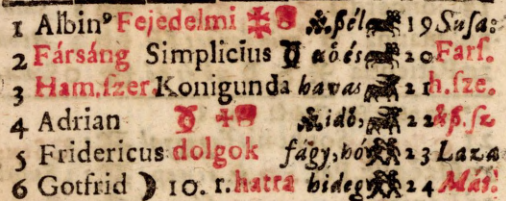 1 Albinꝰ Fejedelmi ßél 19 Susa:
2 Fársáng Simplicius uó.és 20 Farſ.
3 Ham.ſzer Konigunda havas 21 h.ſze.
4 Adrian idö, 22 kß.ſz
5 Fridericus dolgok fágy, hó 23 Laza
6 Gotfrid ☽ 10. r. hatra hideg 24